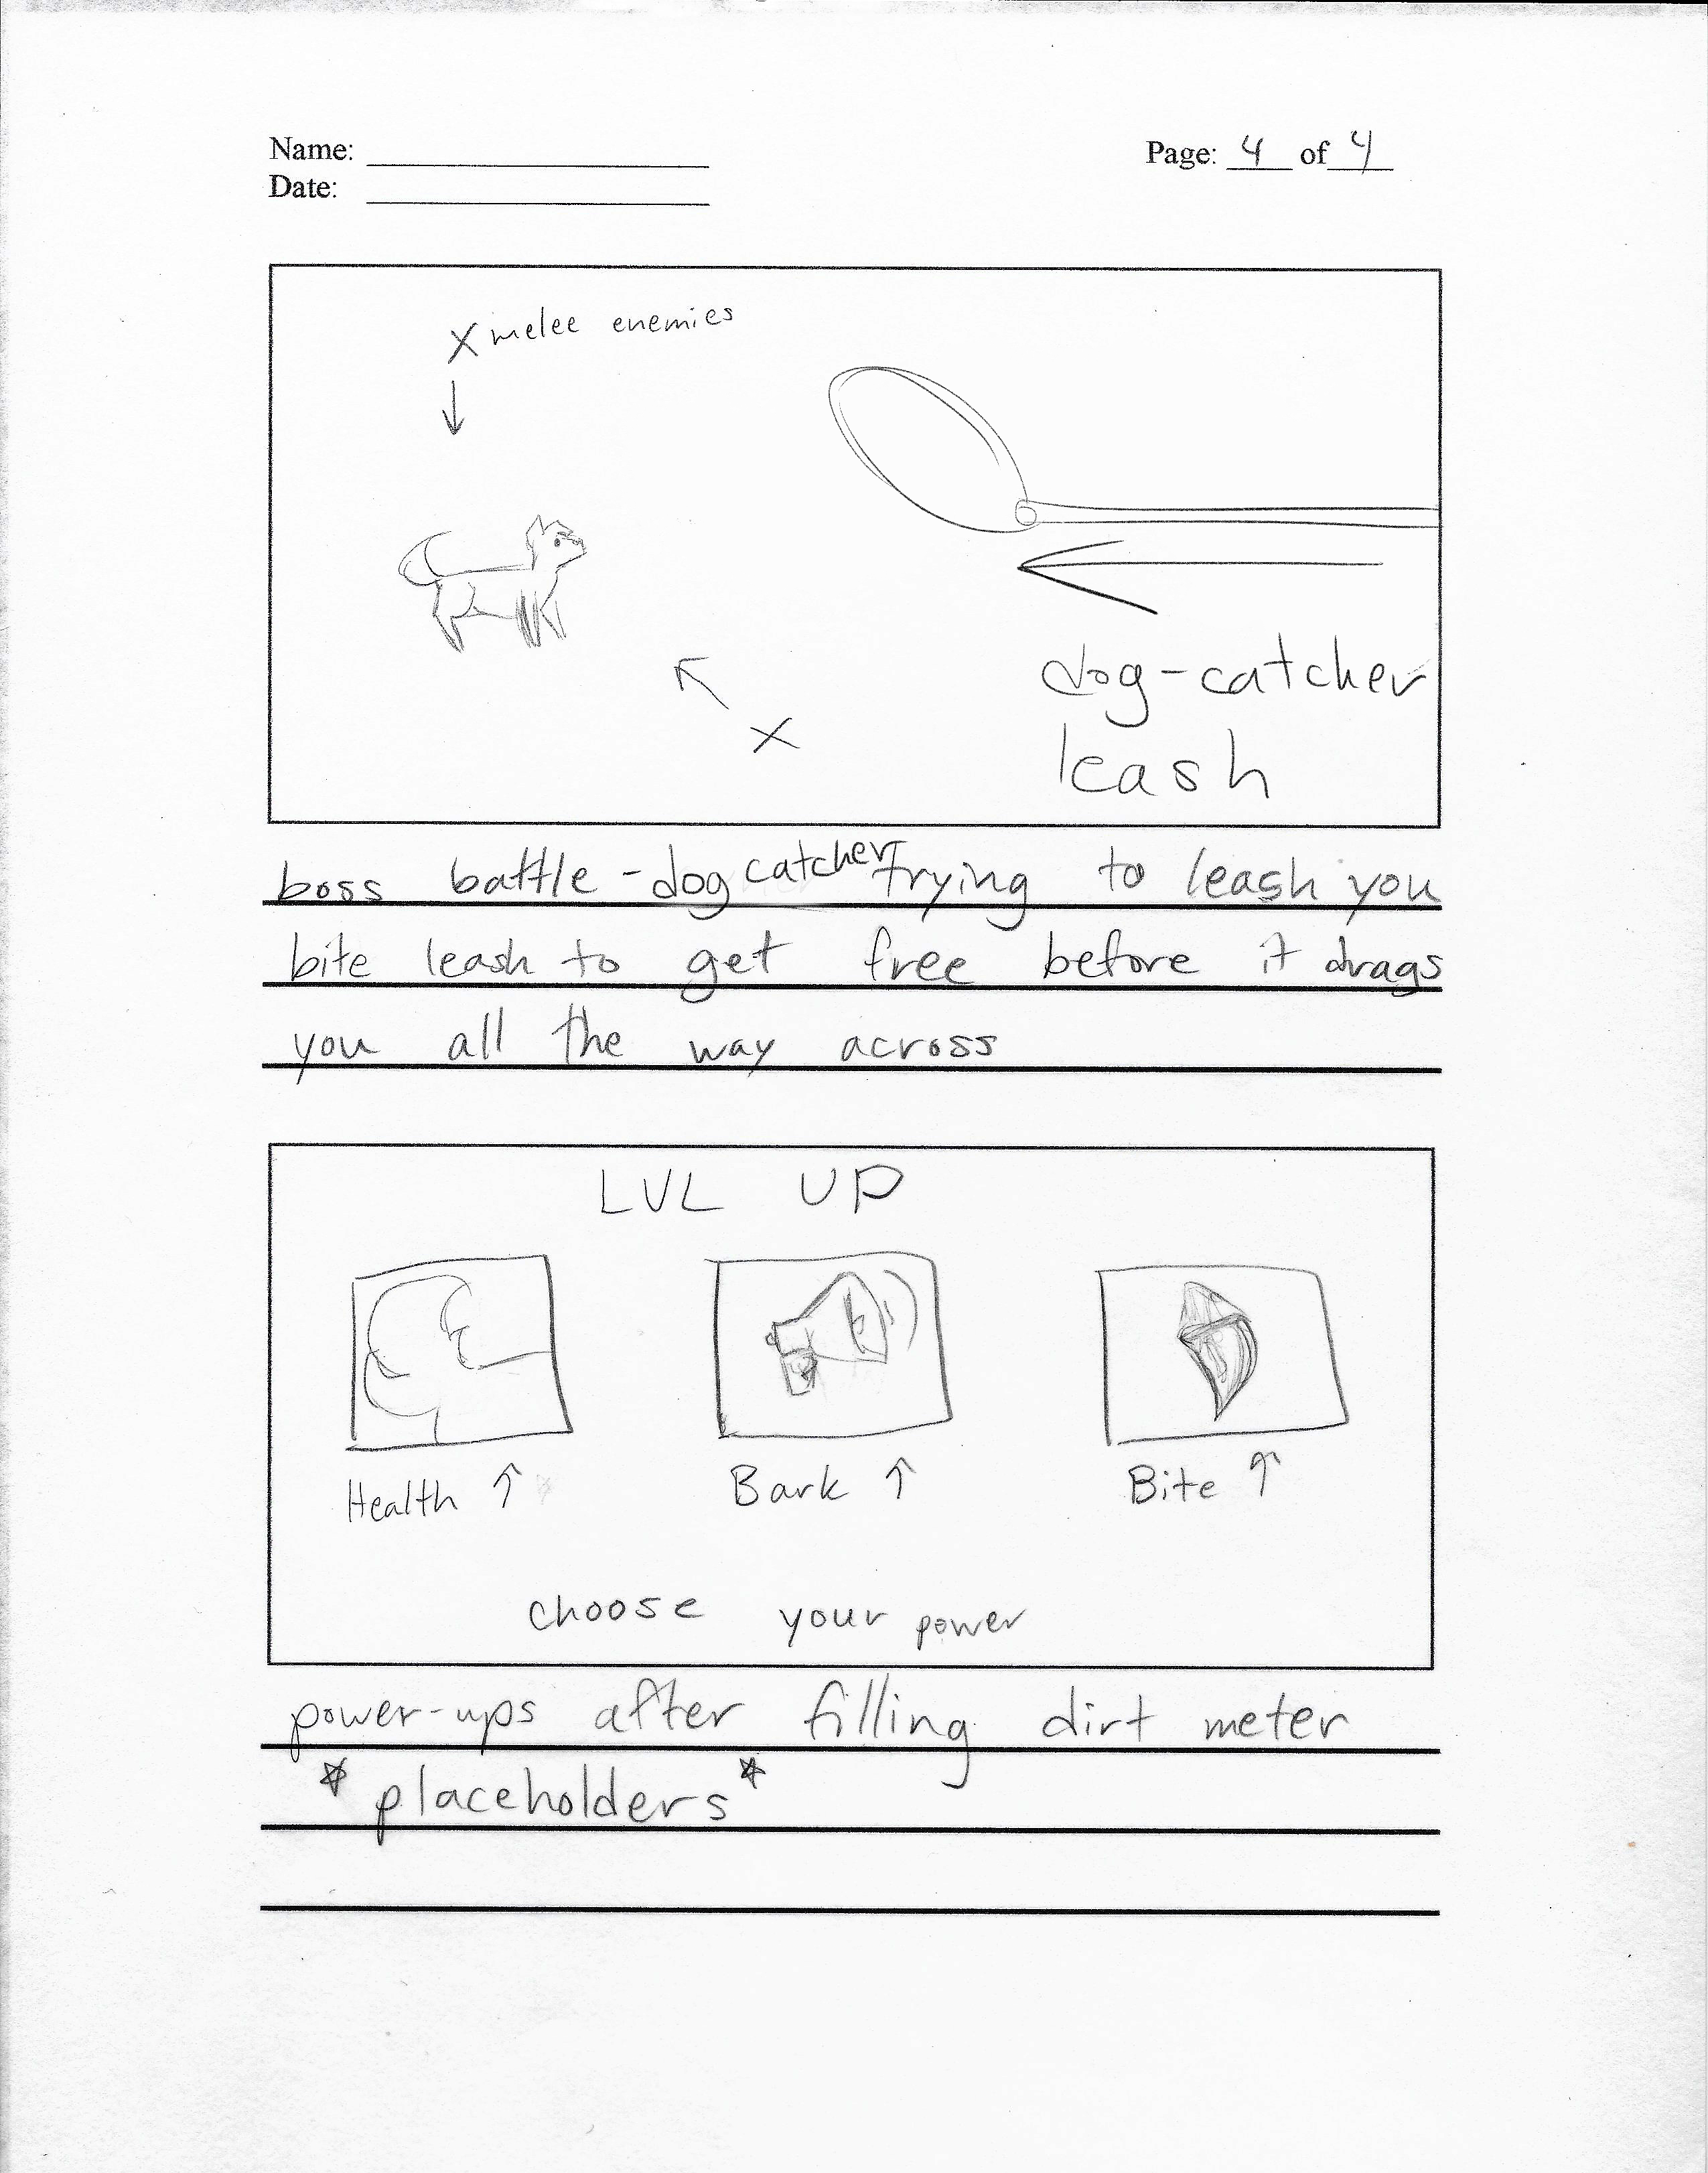 Name:
Page: 4 of 4
Date:
X melee enemies
X
dog-catcher
leash
boss battle - dog catcher trying to leash you
bite leash to get free before it drags
you all the way across
LVL UP
Health ↑ Bark ↑ Bite ↑
choose your power
power-ups after filling dirt meter
* placeholders *